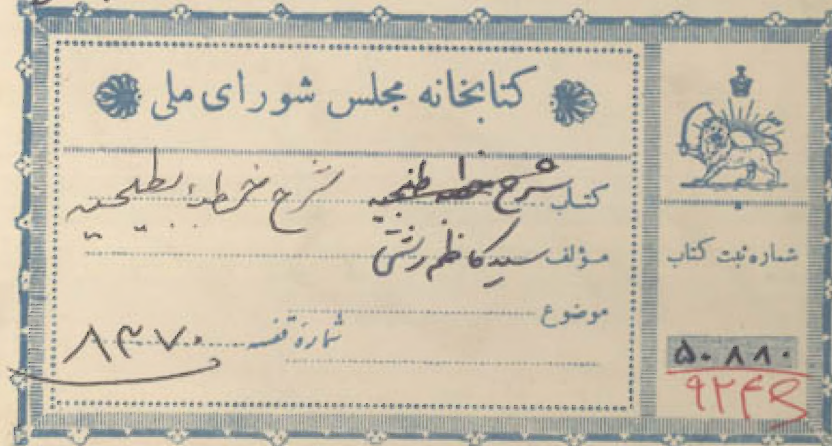 کتابخانه مجلس شورای ملی
کتاب شرح خطبه طتنجیه شرح خطبه بطیحیه
مؤلف سید کاظم رشتی
موضوع
شماره قفسه ۸۳۷۰
شماره ثبت کتاب
۵۰۸۸۰